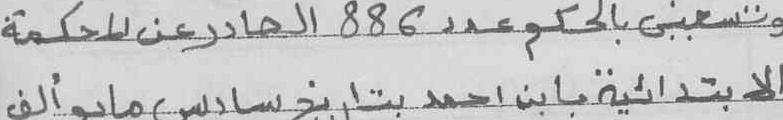 وتستعيني بالحكم عدد 886 الصادر عن المحكمة
الابتدائية بابن احمد بتاريخ سادس مايو ألف